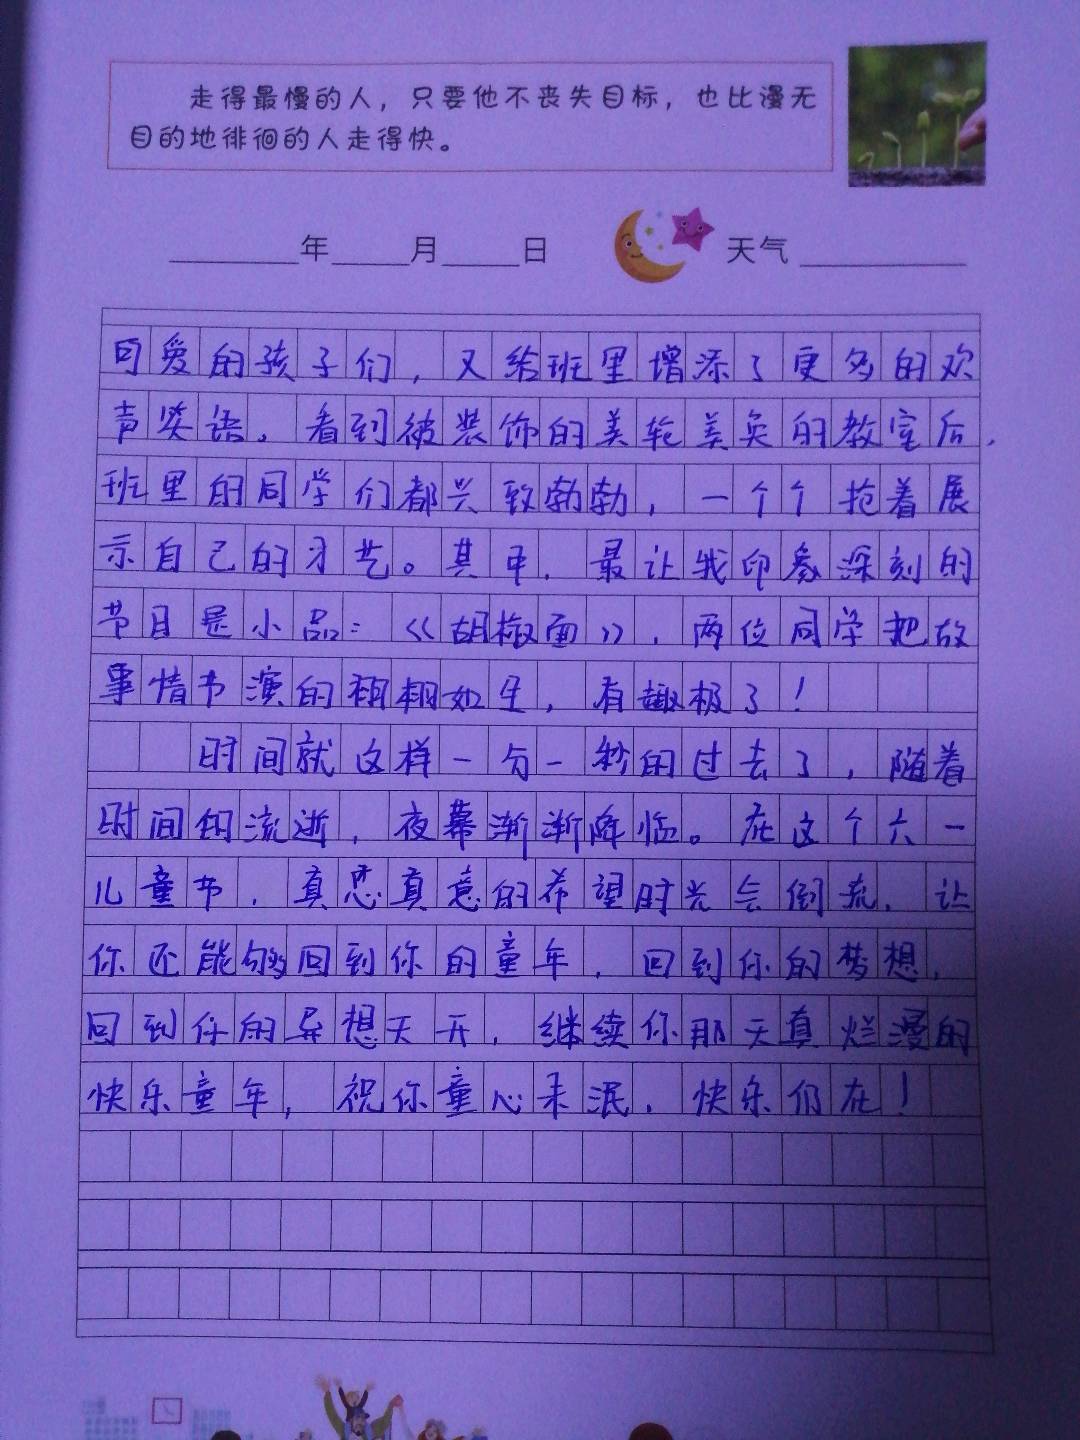 走得最慢的人，只要他不丧失目标，也比漫无
目的地徘徊的人走得快。
年 月 日 天气
可爱的孩子们，又给班里增添了更多的欢
声笑语。看到被装饰的美轮美奂的教室后，
班里的同学们都兴致勃勃，一个个抢着展
示自己的才艺。其中，最让我印象深刻的
节目是小品：《胡椒面》，两位同学把故
事情节演的栩栩如生，有趣极了！
时间就这样一分一秒的过去了，随着
时间的流逝，夜幕渐渐降临。在这个六一
儿童节，真恋真意的希望时光会倒流，让
你还能够回到你的童年，回到你的梦想，
回到你的异想天开，继续你那天真烂漫的
快乐童年，祝你童心未泯，快乐仍在！